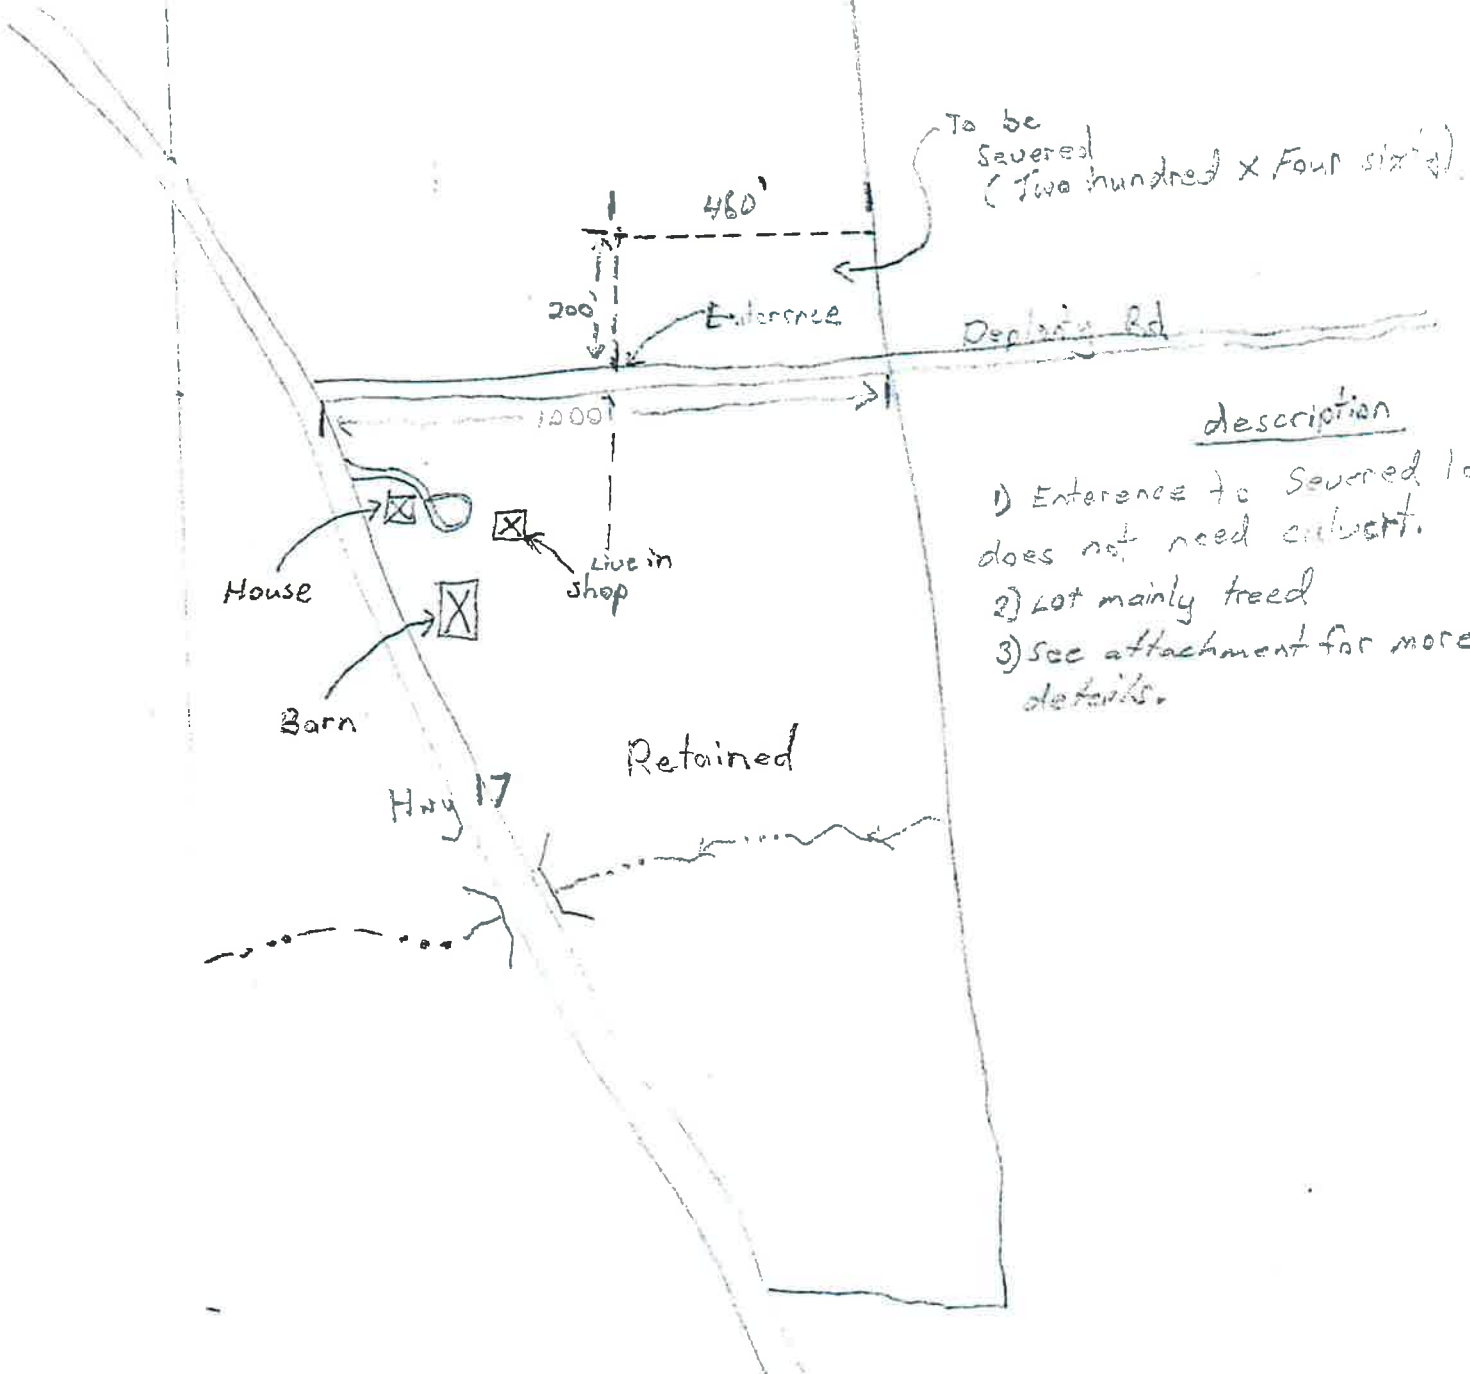 To be
Severed
(Two hundred x Four sixty)
460'
200'
Enterence
Rd
1200'
description
1) Enterence to Severed
does not need culvert.
2) Lot mainly treed
3) See attachment for more
details.
House
Live in
shop
Barn
Retained
Hwy 17